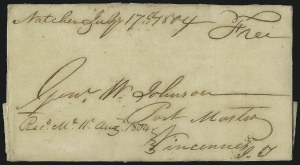 Natchez July 17th 1804 Free
Genl. W. Johnson
Post Master
Recd. Augt. 1804
Vincennes
I. T